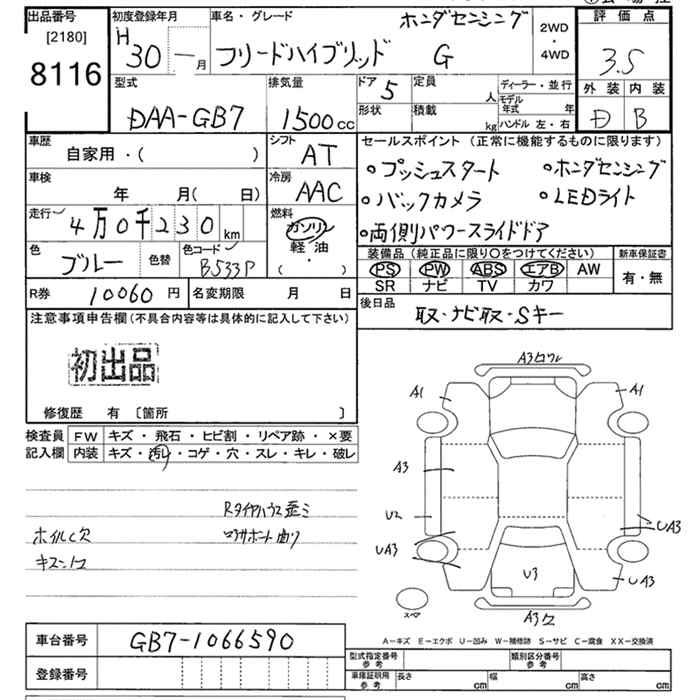 出品番号
[2180]
8116
初度登録年月
H 30 ー 月
車名・グレード
ホンダセンシング
フリードハイブリッド G
2WD
・
4WD
評価点
3.5
外装 内装
D B
型式
DAA-GB7
排気量
1500 cc
ドア 5
定員 人
形状
積載 kg
ディーラー・並行
モデル年式 年
ハンドル 左・右
車歴
自家用・( )
シフト
AT
車検
年 月( 日)
冷房
AAC
走行
4万0千230 km
燃料
ガソリン
軽・油
・
( )
色
ブルー
色替
色コード
B533P
セールスポイント (正常に機能するものに限ります)
・プッシュスタート ・ホンダセンシング
・バックカメラ ・LEDライト
・両側パワースライドドア
装備品 (純正品に限り○をつけてください)
PS PW ABS エアB AW
SR ナビ TV カワ
新車保証書
有・無
R券 10060 円
名変期限 月 日
後日品
取・ナビ取・Sキー
注意事項申告欄 (不具合内容等は具体的に記入して下さい)
初出品
修復歴 有 〔箇所 〕
検査員記入欄
FW キズ・飛石・ヒビ割・リペア跡・×要
内装 キズ・汚レ・コゲ・穴・スレ・キレ・破レ
Rタイヤハウス歪ミ
ホイルC欠
コアサポート曲り
A3
A1
A1
A3
U2
UA3
UA3
UA3
U3
スペア
A3
車台番号
GB7-1066590
登録番号
A-キズ E-エクボ U-凹み W-補修跡 S-サビ C-腐食 XX-交換済
型式指定番号 参考
類別区分番号 参考
車庫証明用 参考
長さ cm
幅 cm
高さ cm